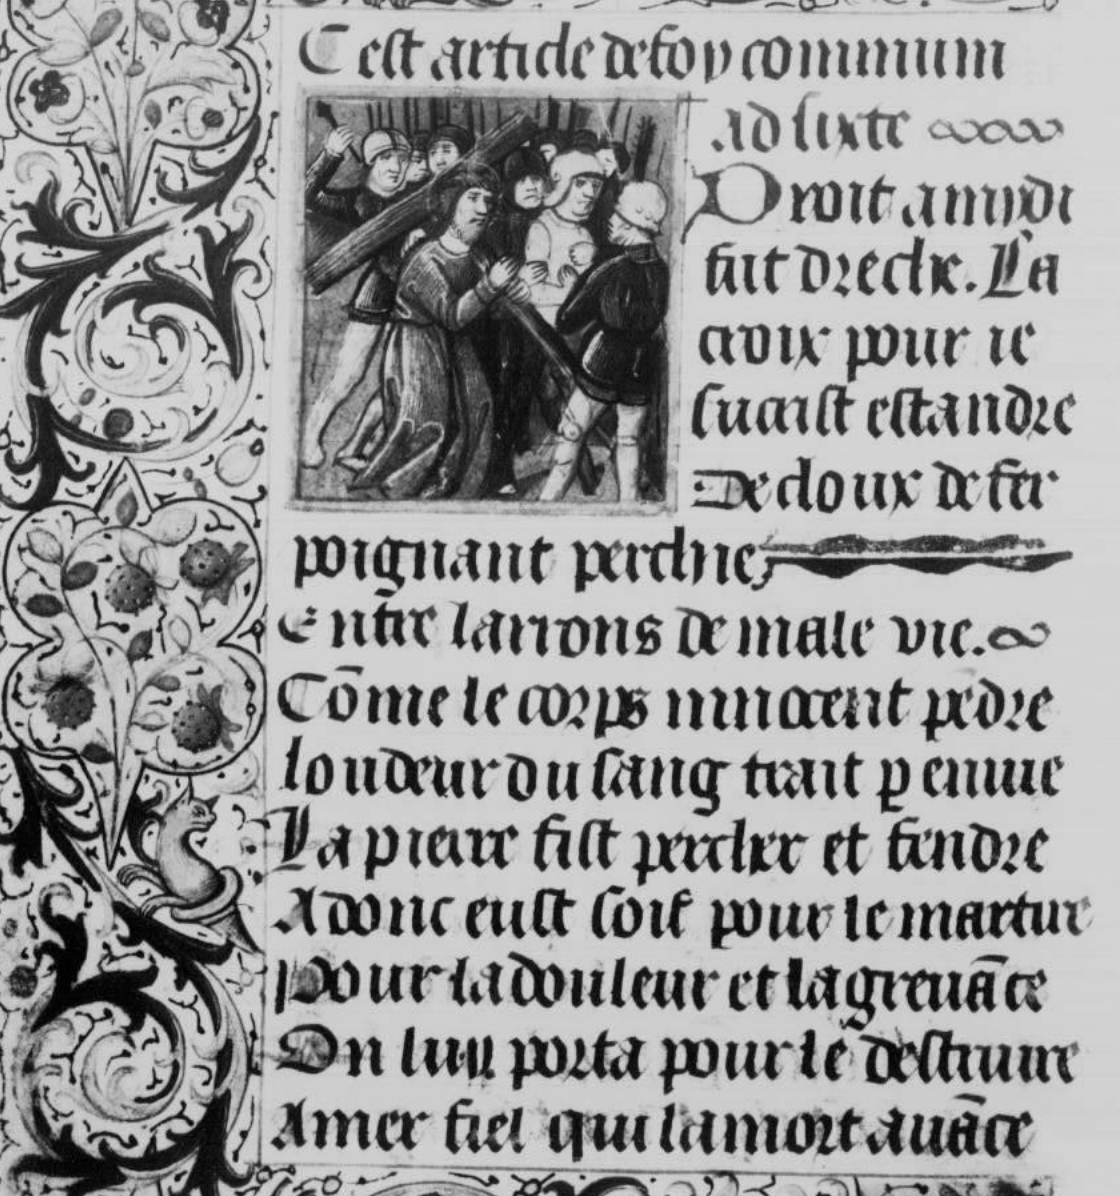 Cest article de foy commum
ad sixte
Droit a mydi
fut drechie. La
croix pour ie
sucrist estandre
De cloux de fer
poignant perchie
Entre larrons de male vie.
Cōme le corps innocent pēdre
loudeur du sang trait p̲ enuie
La pierre fist percher et fendre
Adonc eust soif pour le martire
Pour la douleur et la greuāce
On luy porta pour le destruire
Amer fiel qui la mort auāce